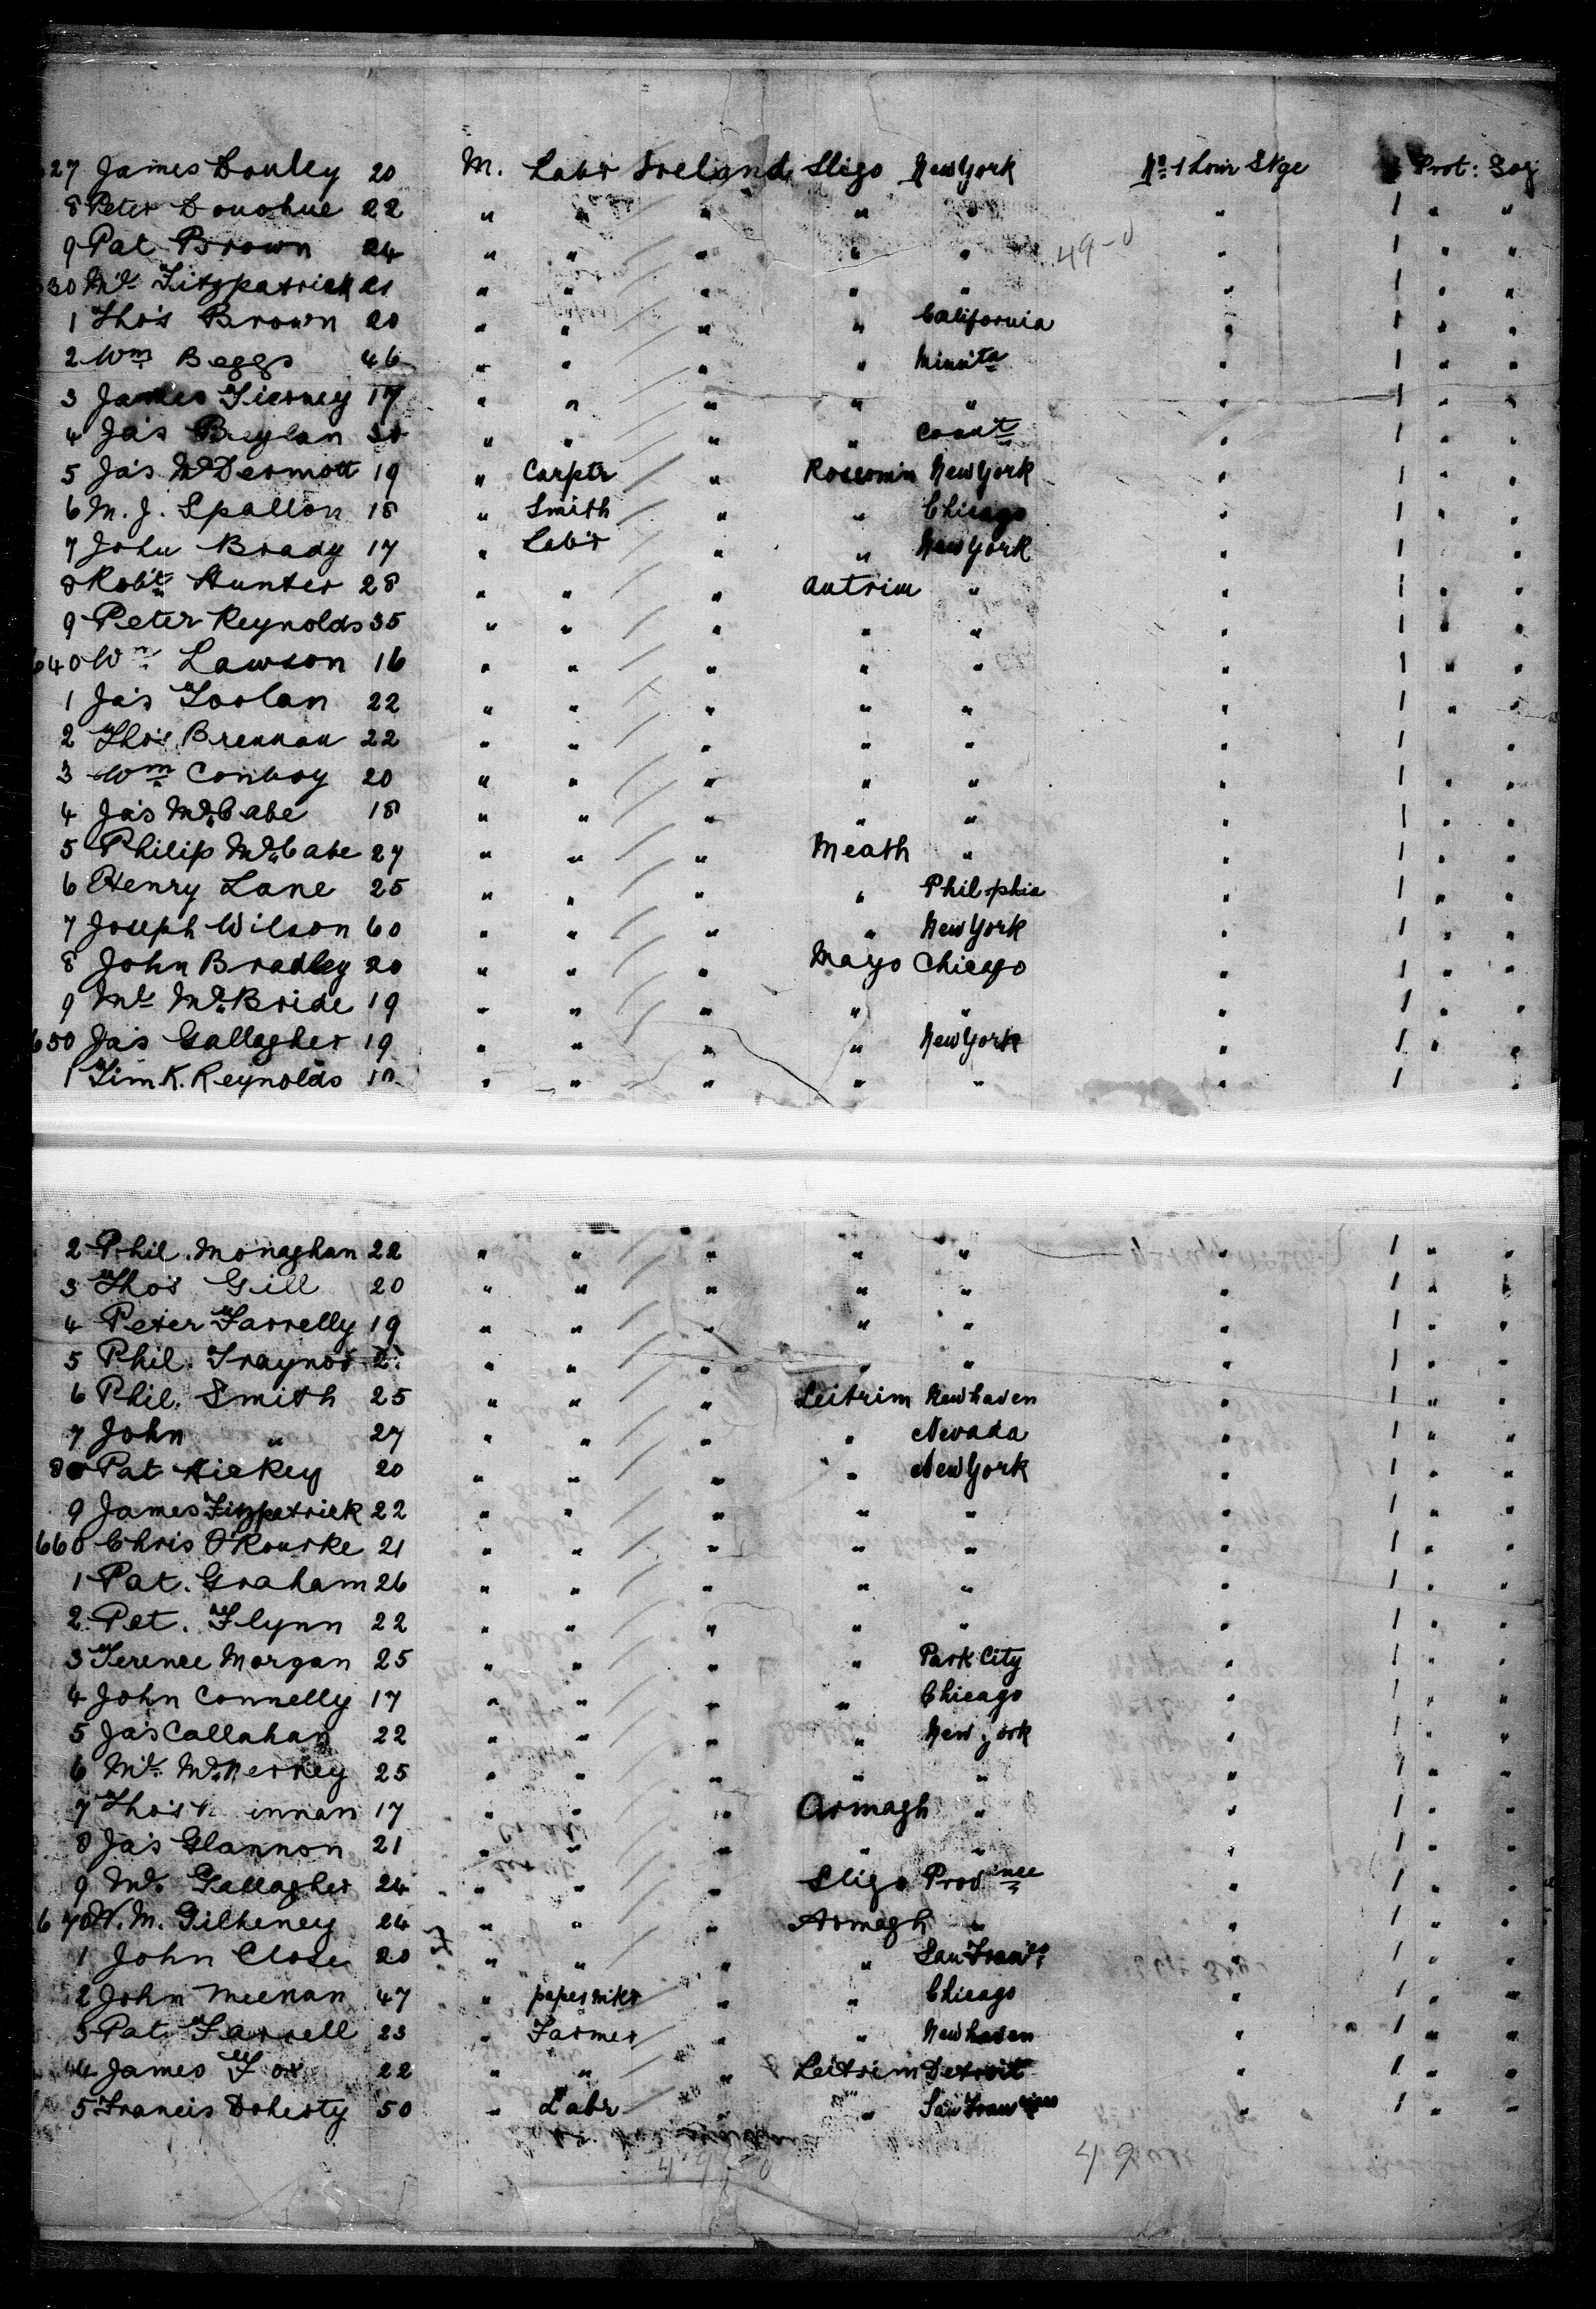 627 James Donley 20 M. Labr Ireland Sligo New York No 1 Lowr Stge 1 Prot: Soj
8 Peter Donohue 22 " " " " " " 1 " "
9 Pat Brown 24 " " " " " 49-0 " 1 " "
630 Ml. Fitzpatrick 21 " " " " " " 1 " "
1 Tho's Brown 20 " " " " California " 1 " "
2 Wm Beggs 46 " " " " Minnta " 1 " "
3 James Tierney 17 " " " " " " 1 " "
4 Ja's " " " " Connt " 1 " "
5 Ja's McDermott 19 " Carptr " Roscomin New York " 1 " "
6 M. J. Spallon 18 " Smith " " Chicago " 1 " "
7 John Brady 17 " Lab'r " " New York " 1 "
8 Rob't Hunter 28 " " " Antrim " " 1 " "
9 Peter Reynolds 35 " " " " " " 1 " "
640 Wm Lawson 16 " " " " " " 1 " "
1 Ja's Toolan 22 " " " " " " 1 " "
2 Tho's Brennan 22 " " " " " " 1 "
3 Wm Conboy 20 " " " " " " 1 " "
4 Ja's McCabe 18 " " " " " " 1 " "
5 Philip McCabe 27 " " " Meath " " 1 " "
6 Henry Lane 25 " " " " Philphia " 1 " "
7 Joseph Wilson 60 " " " " New York " 1 " "
8 John Bradley 20 " " " Mayo Chicago " 1 " "
9 Ml McBride 19 " " " " " " 1 " "
650 Ja's Gallagher 19 " " " " New York " 1 " "
1 Tim K. Reynolds " " " " " " 1 "
2 Phil. Monaghan 22 " " " " " " 1 " "
3 Tho's Gill 20 " " " " " " 1 " "
4 Peter Farrelly 19 " " " " " " 1 " "
5 Phil. Traynor " " " " " " 1 " "
6 Phil. Smith 25 " " " Leitrim New haven " 1 " "
7 John " 27 " " " " Nevada " 1 " "
8 Pat Hickey 20 " " " " New York " 1 " "
9 James Fitzpatrick 22 " " " " " " 1 " "
660 Chris O'Rourke 21 " " " " " " 1 " "
1 Pat. Graham 26 " " " " " " 1 " "
2 Pat. Flynn 22 " " " " " " 1 " "
3 Terence Morgan 25 " " " " Park City " 1 " "
4 John Connelly 17 " " " " Chicago " 1 " "
5 Ja's Callahan 22 " " " " New York " 1 " "
6 Ml. McNerney 25 " " " " " " 1 " "
7 Tho's 17 " " " Armagh " " 1 " "
8 Ja's Glannon 21 " " " " " " 1 " "
9 Ml. Gallagher 24 " " " Sligo Provnce " 1 " "
670 W. M. Gilheney 24 " " " Armagh " " 1 " "
1 John Close 20 " " " " San Fran'co " 1 " "
2 John Meenan 47 " papermkr " " Chicago " 1 " "
3 Pat. Farrell 23 " Farmer " " New haven " 1 " "
4 James Fox 22 " " " Leitrim Detroit " 1 " "
5 Francis Doherty 50 " Labr " " San Francisco " 1 " "
49